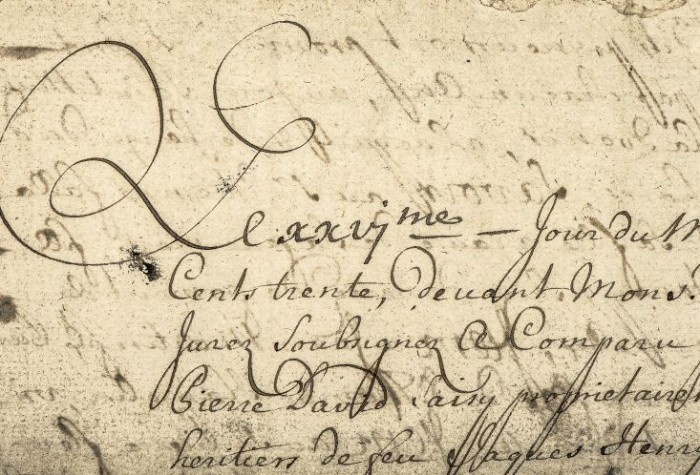 Le xxvj me — Jour du M
Cents trente, devant Mons.
Jurez Soubsignez Et Comparu
Pierre David Saisy proprietaire
heritiers de feu Jaques Henry